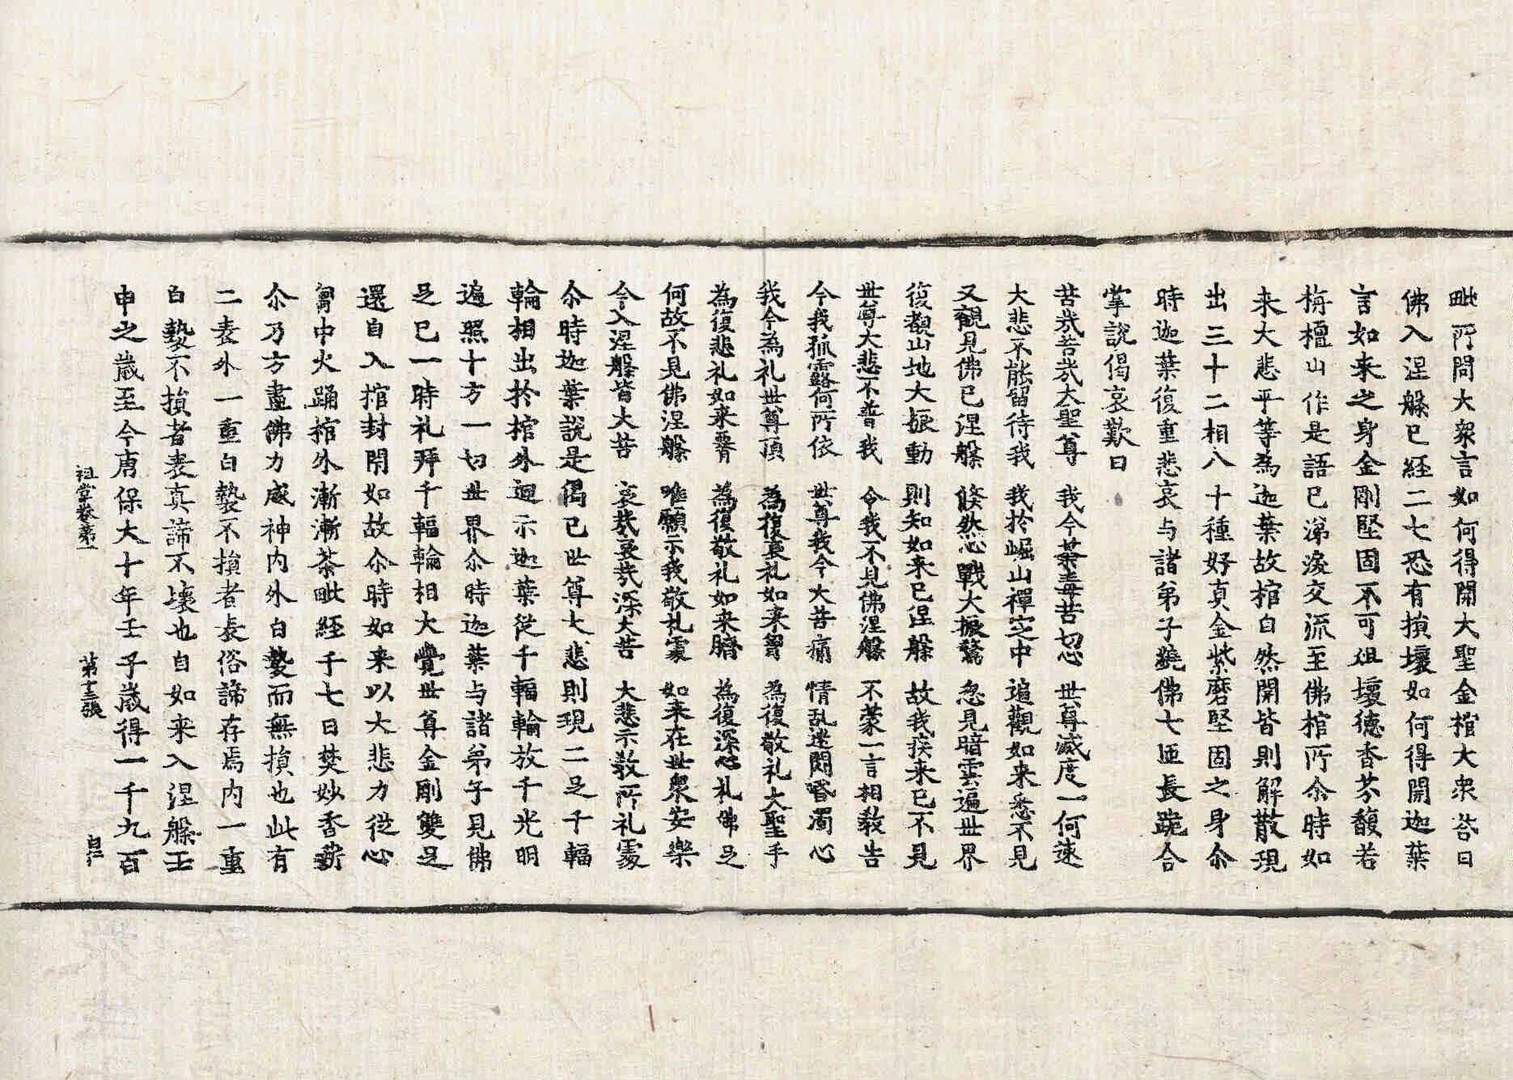 毗所問大衆言如何得開大聖金棺大衆荅曰
佛入涅槃已經二七恐有損壞如何得開迦葉
言如来之身金剛堅固不可俎壞德香芬馥若
栴檀山作是語已涕淚交流至佛棺所尒時如
来大悲平等為迦葉故棺自然開皆則解散現
出三十二相八十種好真金紫磨堅固之身尒
時迦葉復重悲哀与諸弟子繞佛七迊長跪合
掌說偈哀歎曰
苦㢤苦㢤大聖尊 我今荼毒苦切心 世尊滅度一何速
大悲不能留待我 我扵崛山禪㝎中 遍觀如来悉不見
又覩見佛已涅槃 倐然心戰大振驚 忽見暗雲遍世界
復觀山地大振動 則知如来已涅槃 故我疾来已不見
世尊大悲不普我 令我不見佛涅槃 不蒙一言相教告
今我孤露何所依 世尊我今大苦痛 情乱迷悶昏濁心
我今為礼世尊頂 為復哀礼如来胷 為復敬礼大聖手
為復悲礼如来𦝫 為復敬礼如来臍 為復深心礼佛足
何故不見佛涅槃 唯願示我敬礼䖏 如来在世衆安樂
今入涅槃皆大苦 哀㢤哀㢤深大苦 大悲示教所礼䖏
尒時迦葉說是偈已世尊大悲則現二足千輻
輪相出扵棺外迴示迦葉從千輻輪放千光明
遍照十方一切世界尒時迦葉与諸弟子見佛
足已一時礼拜千輻輪相大覺世尊金剛雙足
還自入棺封閇如故尒時如来以大悲力從心
胷中火踊棺外漸漸荼毗經千七日焚妙香薪
尒乃方盡佛力威神内外白㲲而無損也此有
二表外一重白㲲不損者表俗諦存焉内一重
白㲲不損者表真諦不壞也自如来入涅槃壬
申之歲至今唐保大十年壬子歲得一千九百
祖堂卷苐一 苐十三張